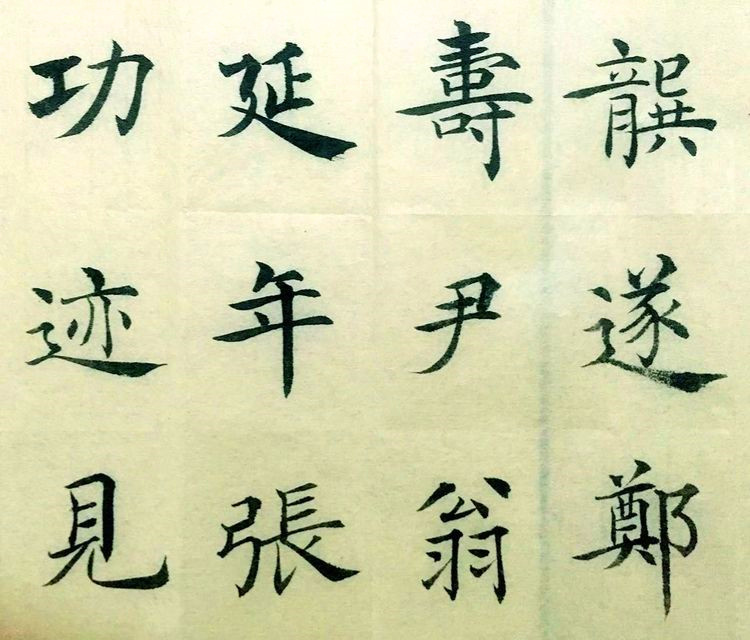 龔遂鄭
壽尹翁
延年張
功迹見